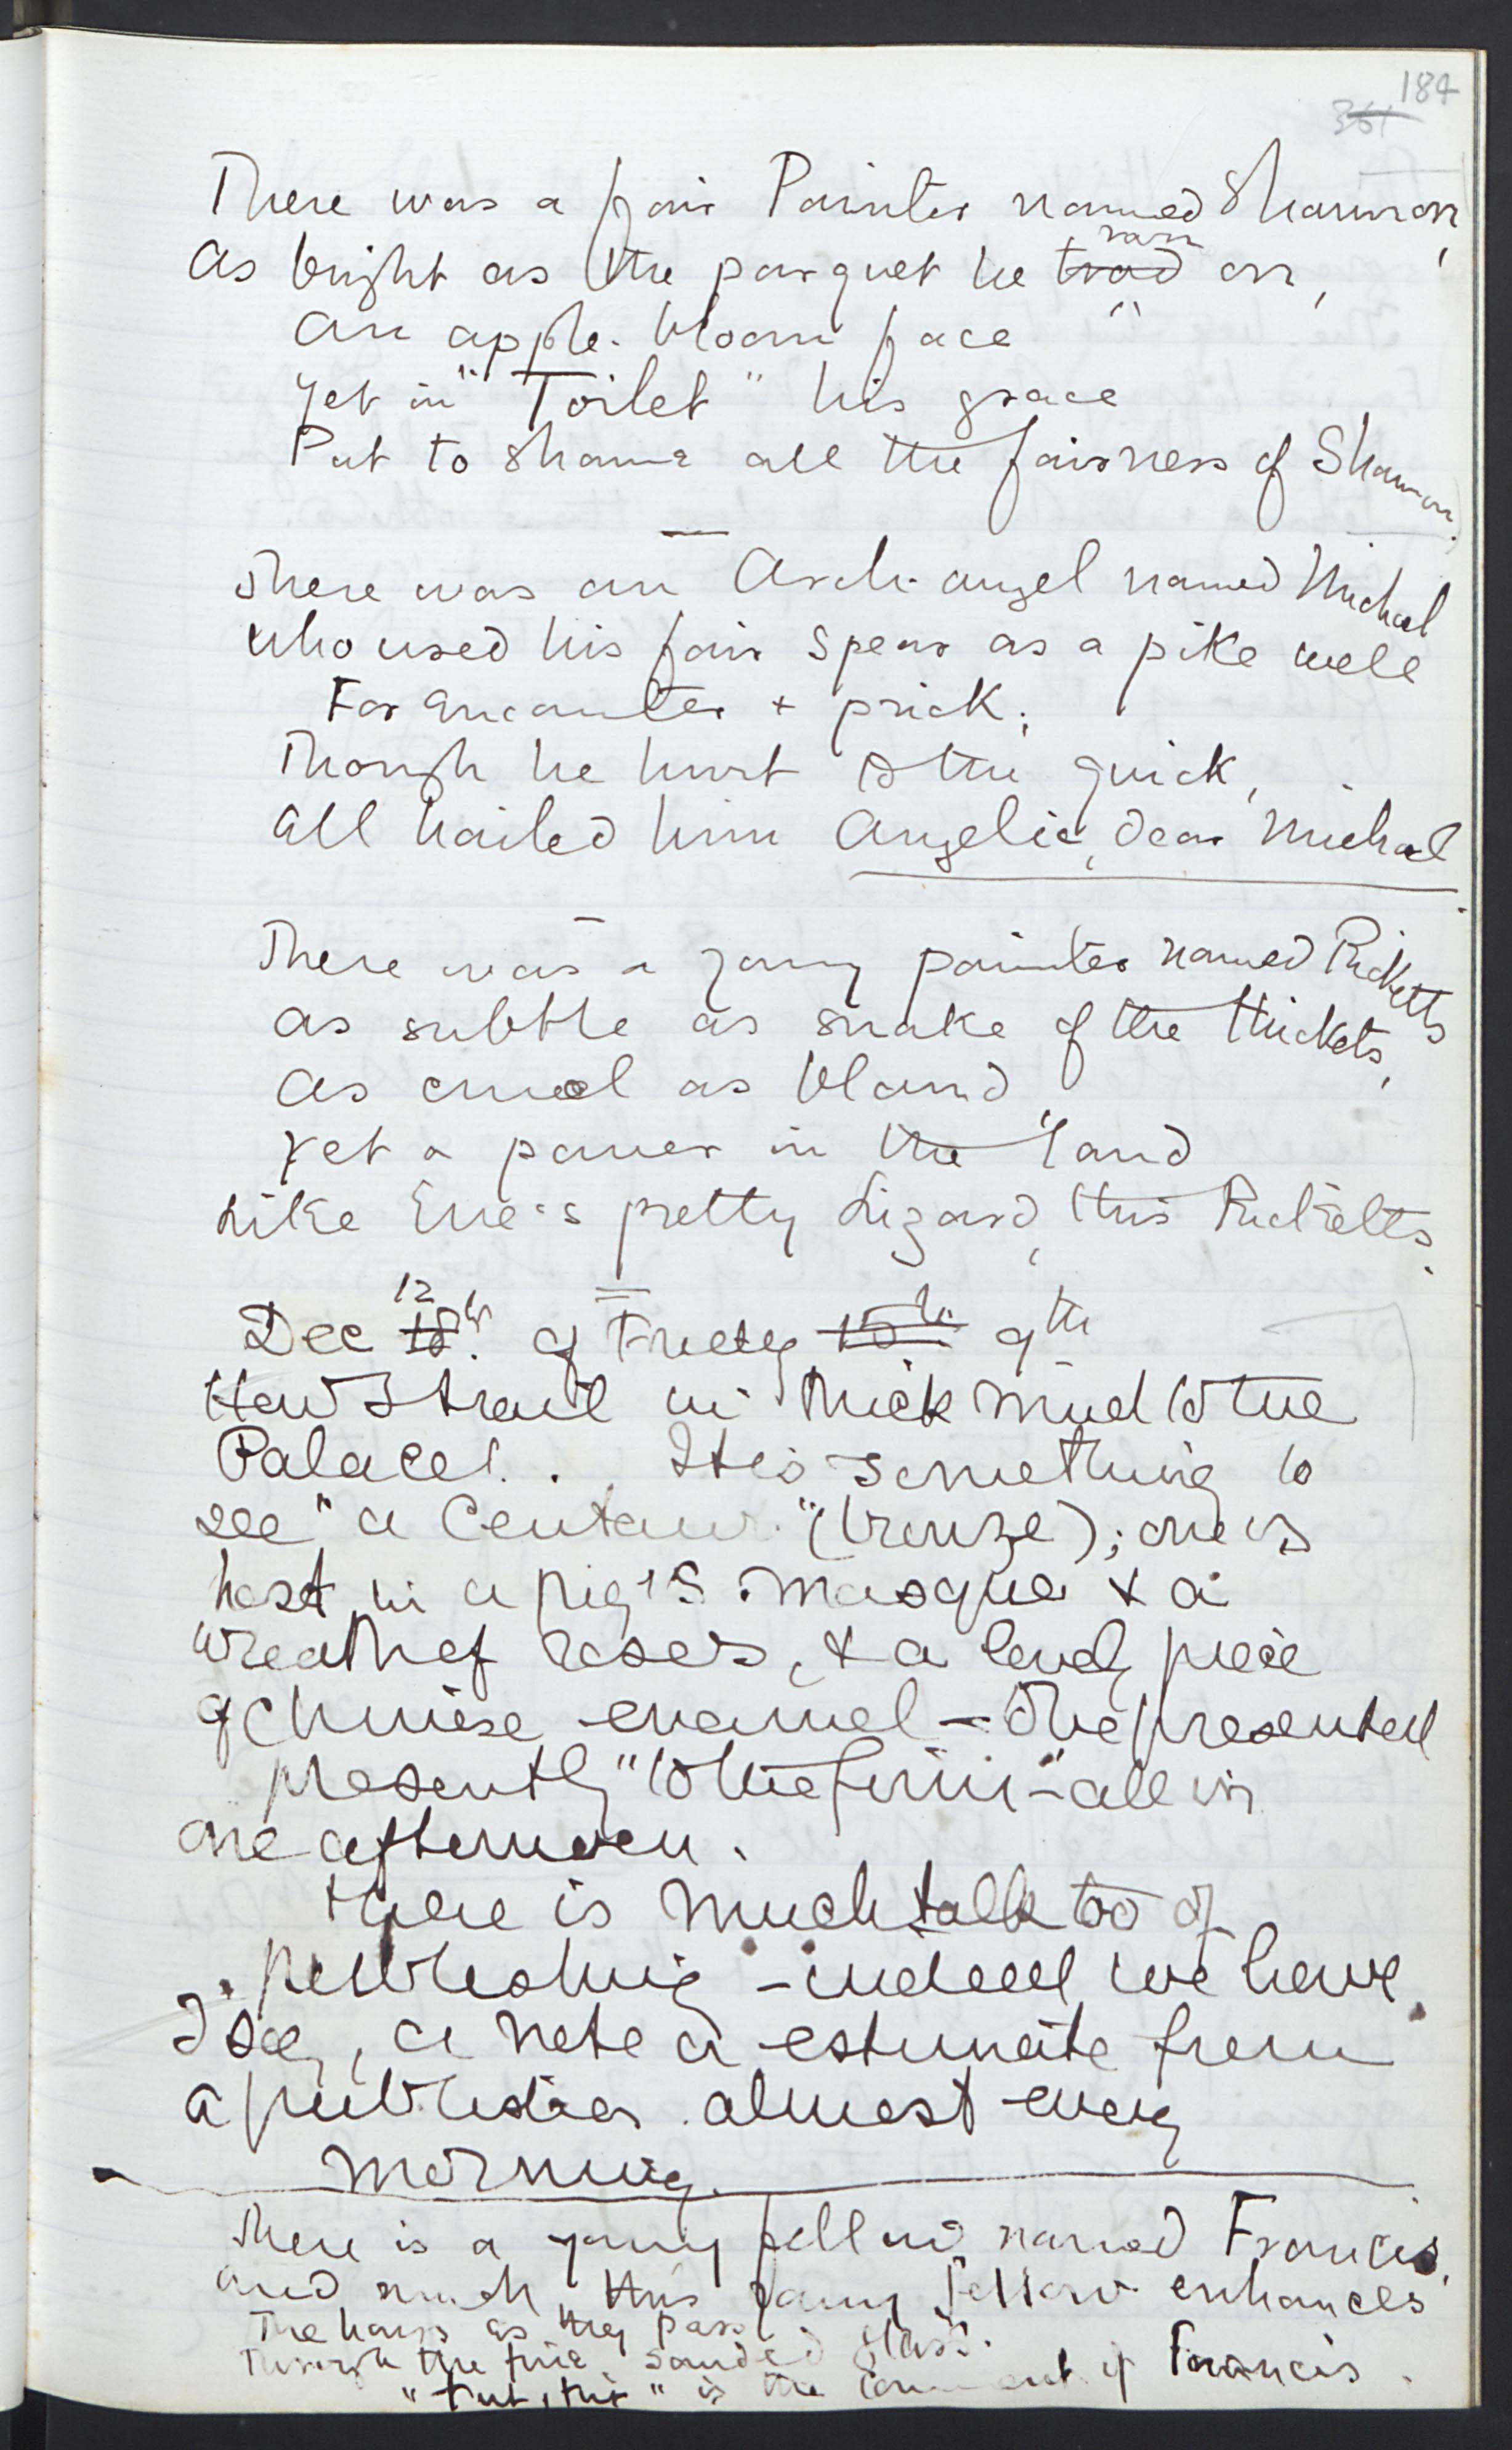 184
361
There was a fair Painter named Shannon,
As bright as the parquet he trod ran on,
An apple-bloom face
Yet in "Toilet" his grace
Put to shame all the fairness of Shannon.
There was an Arch-angel named Michael
Who used his fair spear as a pike well
For encounter + prick;
Though he hurt to the quick,
All hailed him Angelic, dear Michael.
There was a young painter named Ricketts
As subtle as snake of the thickets,
As cruel as bland
Yet a power in the land
Like Eve's pretty Lizard, this Ricketts.
Dec 18th 12 of 15th 9th
How I trail in thick mud to the
Palace! . It is something to
see "a Centaur" (bronze); one's
host in a pig's masque + a
wreath of roses, + a lovely piece
of Chinese enamel - to be presented
presently "to the firm" - all in
one afternoon.
There is much talk too of
publishing - indeed we have,
I say, a note or estimate from
a publisher almost every
morning.
There is a young fellow named Francis,
And much this young fellow enhances
The hours as they pass
Through the fine sanded glass.
"Tut, tut" is the comment of Francis.